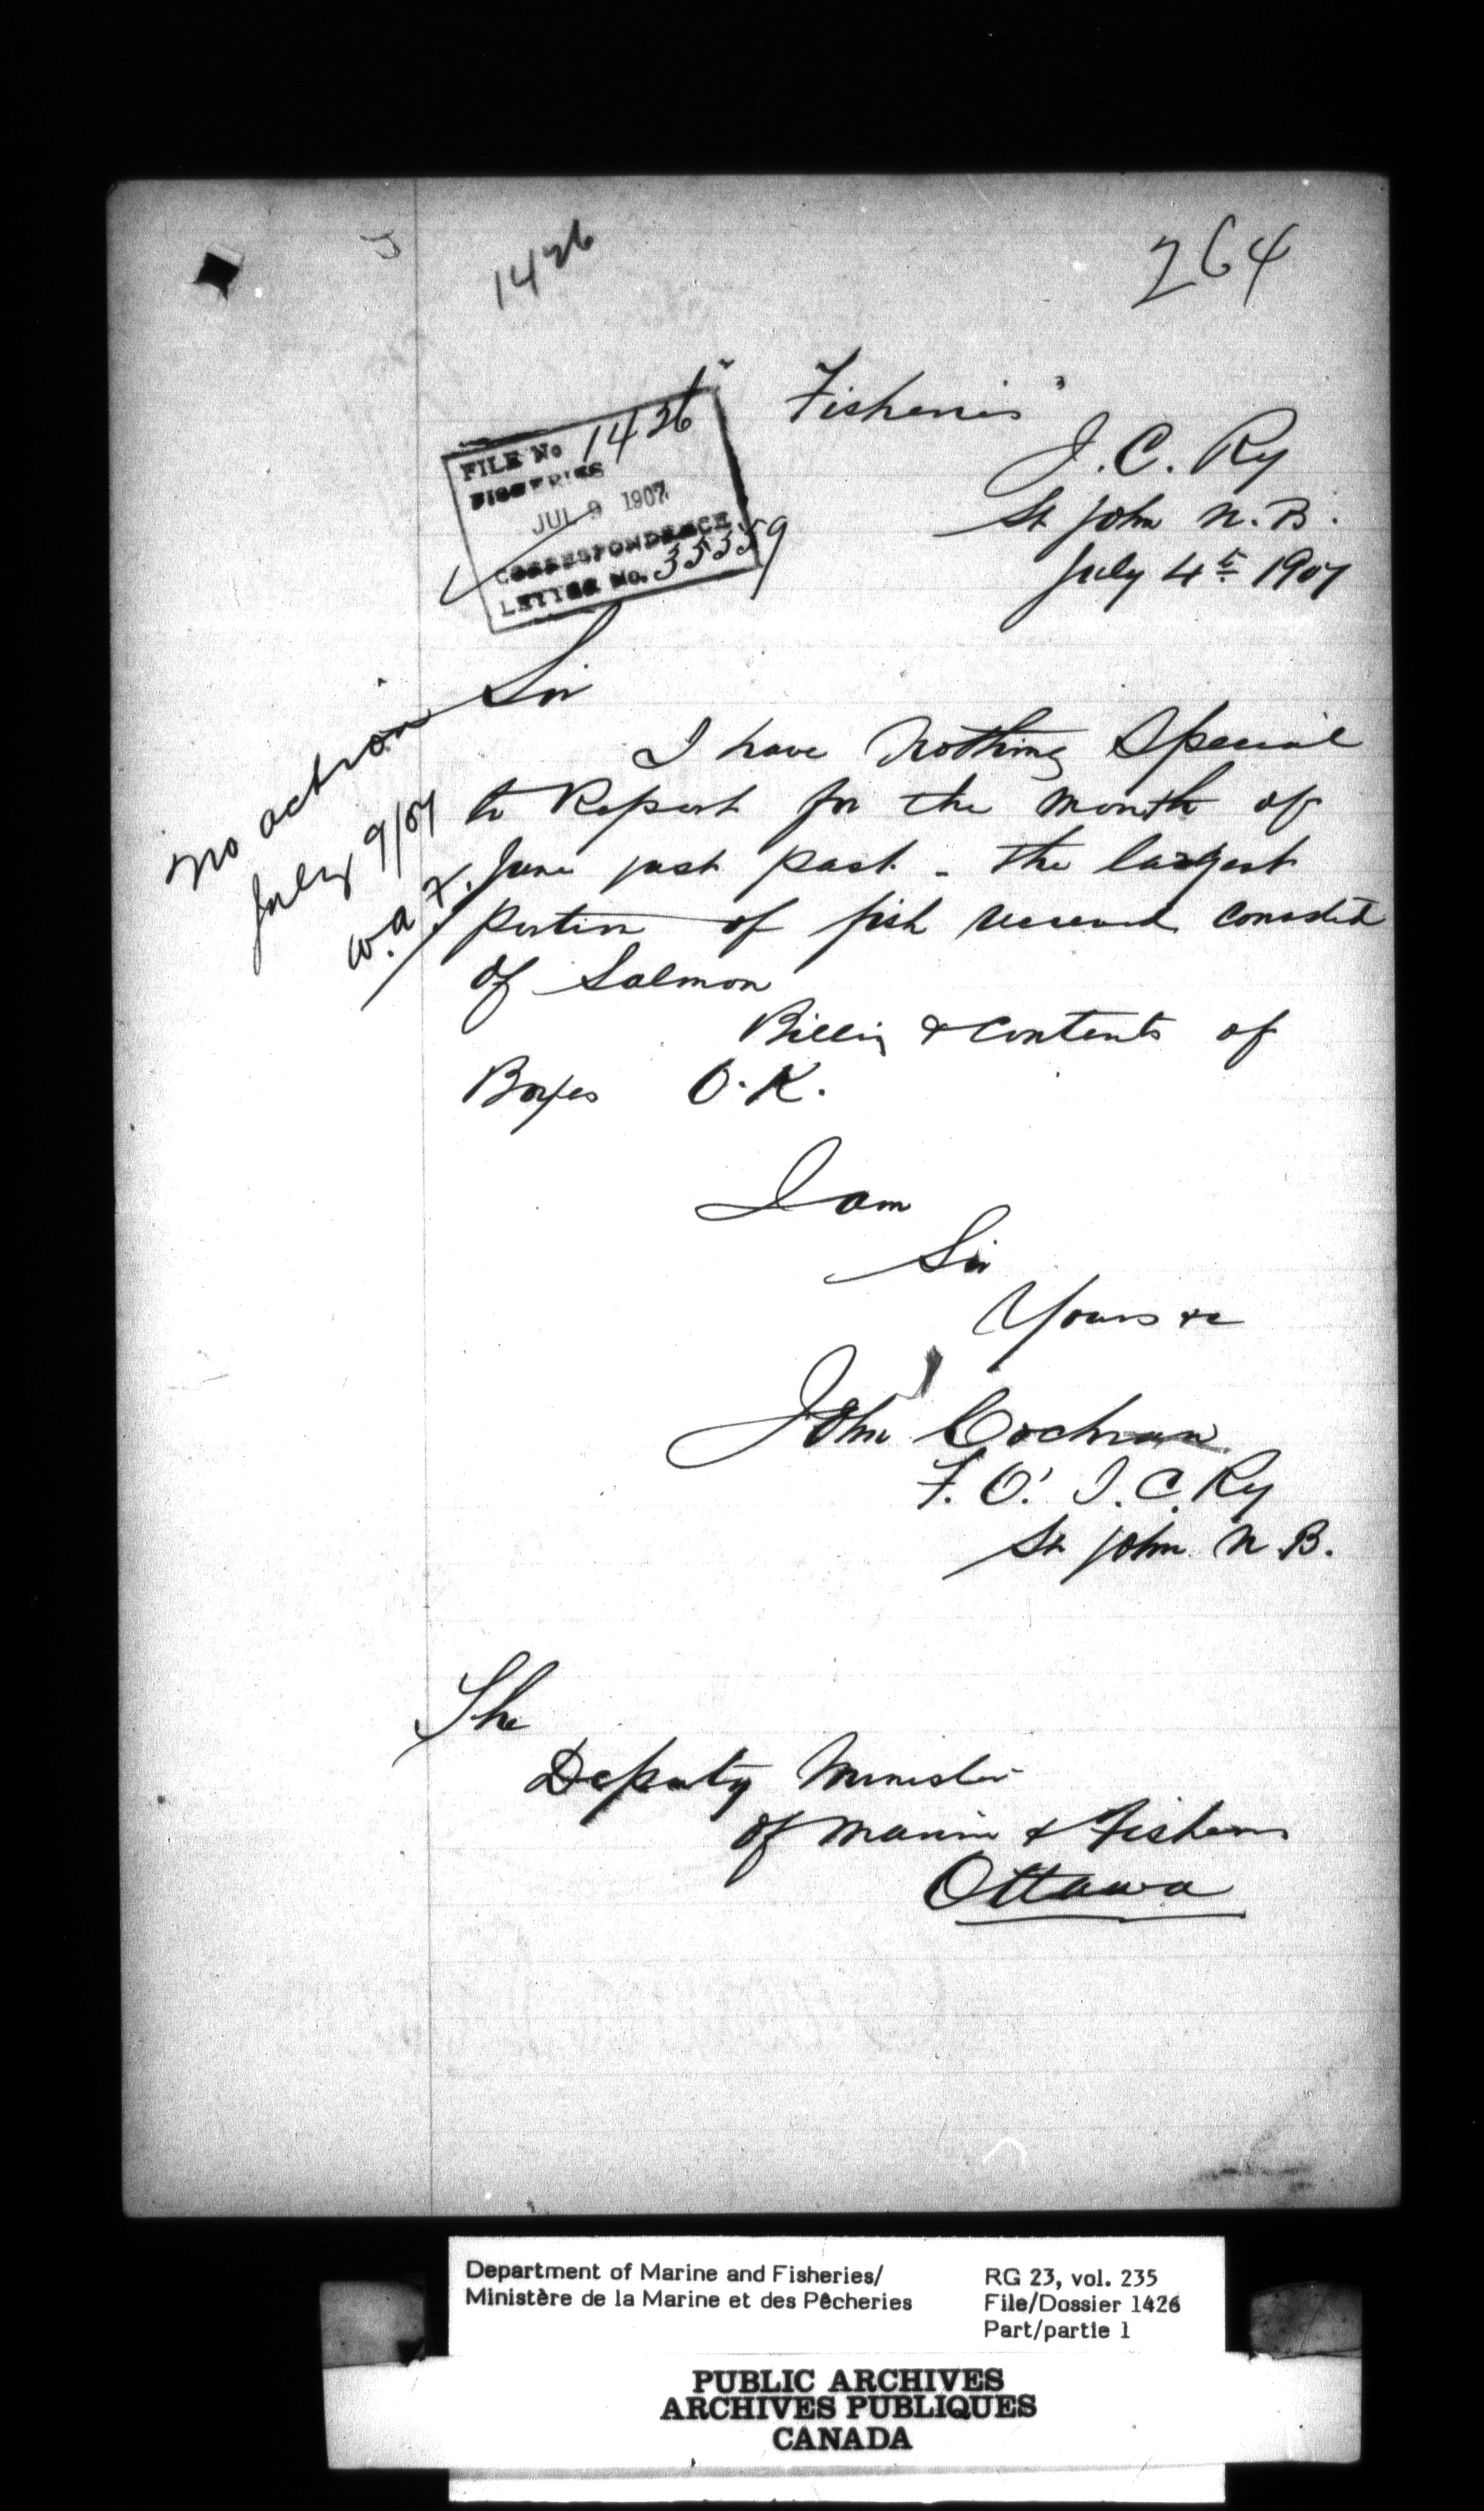 1426
264
"Fisheries"
I. C. Ry
St John N. B.
July 4th 1907
FILE No 1426
FISHERIES
JUL 9 1907
CORRESPONDENCE
LETTER No. 35359
No action
July 9/07
W. A. F.
Sir
I have Nothing Special
to Report for the month of
June just past - the largest
portion of fish received consisted
of Salmon
Billing & contents of
Boxes O.K.
I am
Sir
Yours &c
John Cochran
F. O. I. C. Ry
St John N. B.
The
Deputy Minister
of Marine & Fisheries
Ottawa
Department of Marine and Fisheries/
Ministère de la Marine et des Pêcheries
RG 23, vol. 235
File/Dossier 1426
Part/partie 1
PUBLIC ARCHIVES
ARCHIVES PUBLIQUES
CANADA